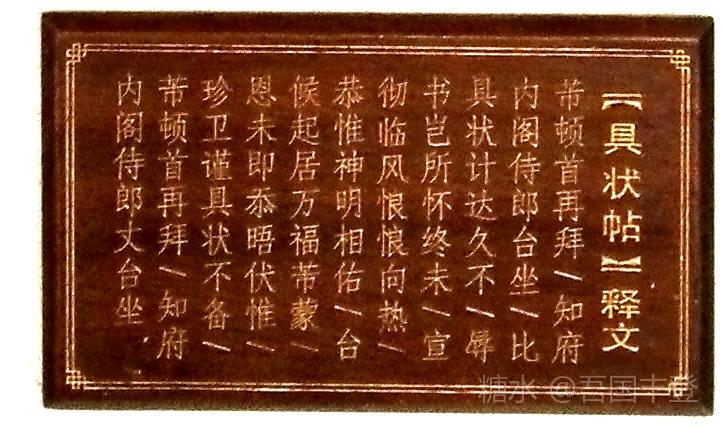 【具状帖】释文
芾顿首再拜/知府
内阁侍郎台坐/比
具状计达久不/辱
书岂所怀终未/宣
彻临风恨恨向热/
恭惟神明相佑/台
候起居万福芾蒙/
恩未即忝晤伏惟/
珍卫谨具状不备/
芾顿首再拜/知府
内阁侍郎丈台坐
糖水 @吾国丰登